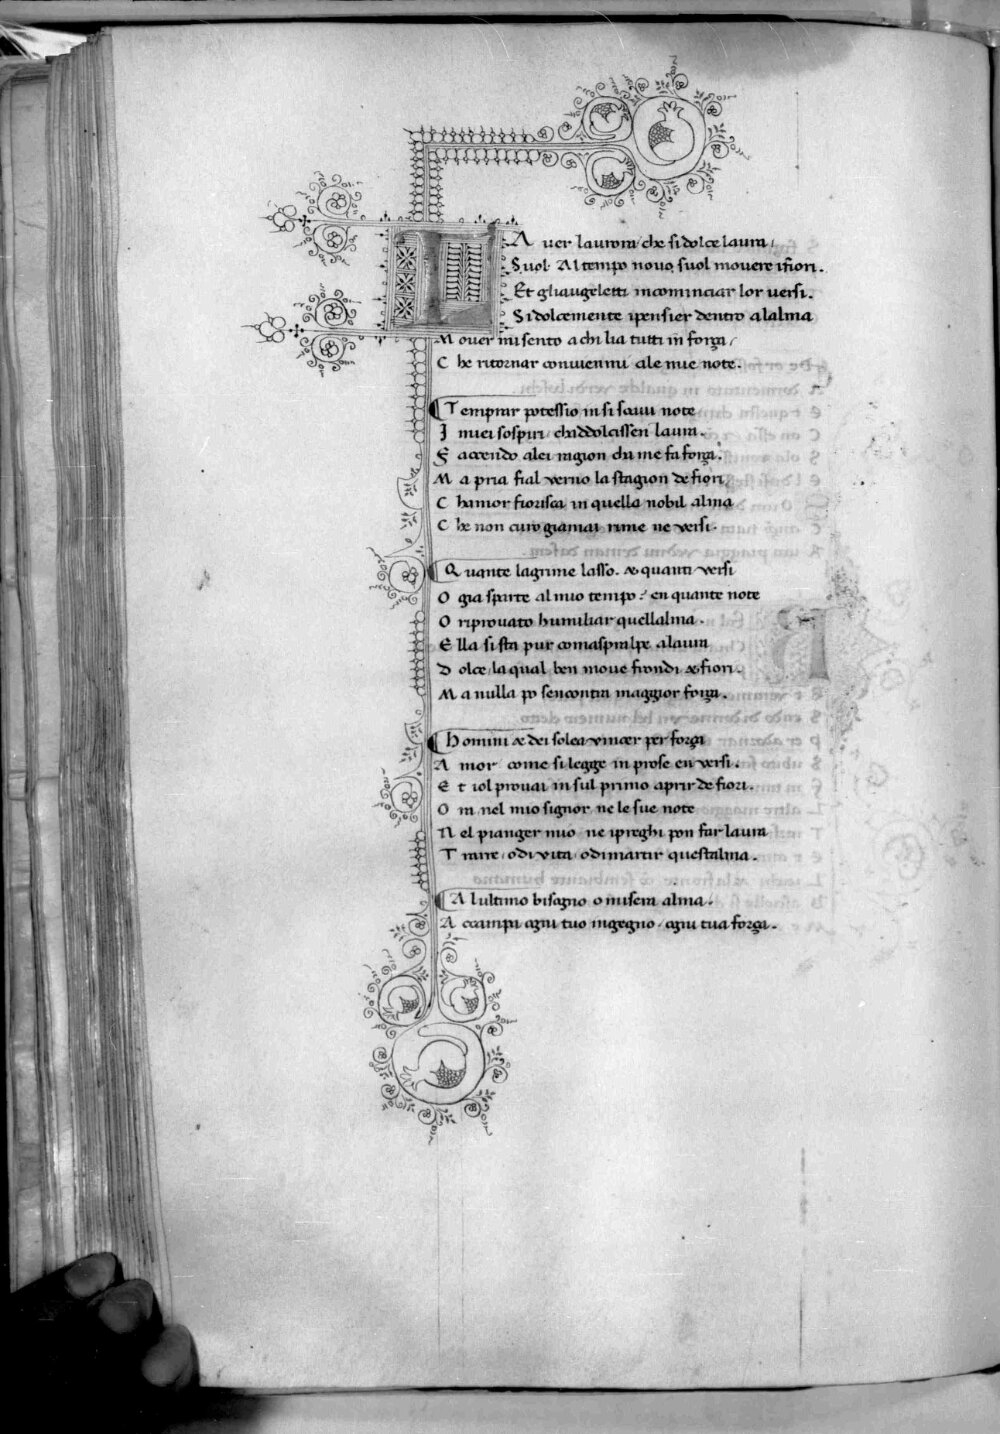 L A uer laurora che si dolce laura
Suol Al tempo nouo suol mouere ifiori.
Et gliaugeletti incominciar lor uersi.
Si dolcemente ipensier dentro alalma
M ouer misento a chi lia tutti in força
C he ritornar conuienmi ale mie note.
T emprar potessio in si soaui note
I miei sospiri chaddolcissen laura.
F accendo alei ragion cha me fa força.
M a pria fial uerno la stagion de fiori
C hamor fiorisca in quella nobil alma
C he non curo giamai rime ne uersi.
Q uante lagrime lasso. & quanti uersi
O gia sparte al mio tempo: en quante note
O riprouato humiliar quellalma.
E lla si sta pur comaspralpe alaura
D olce la qual ben moue frondi & fiori.
M a nulla po sencontra maggior força.
H omini & dei solea uincer per força
A mor come si legge in prose en uersi.
E t iol prouai in sul primo aprir de fiori.
O ra nel mio signor ne le sue note
N el pianger mio ne ipreghi pon far laura
T rarre o di uita o di martir questalma.
A lultimo bisogno o misera alma.
A ccampa ogni tuo ingegno ogni tua força.